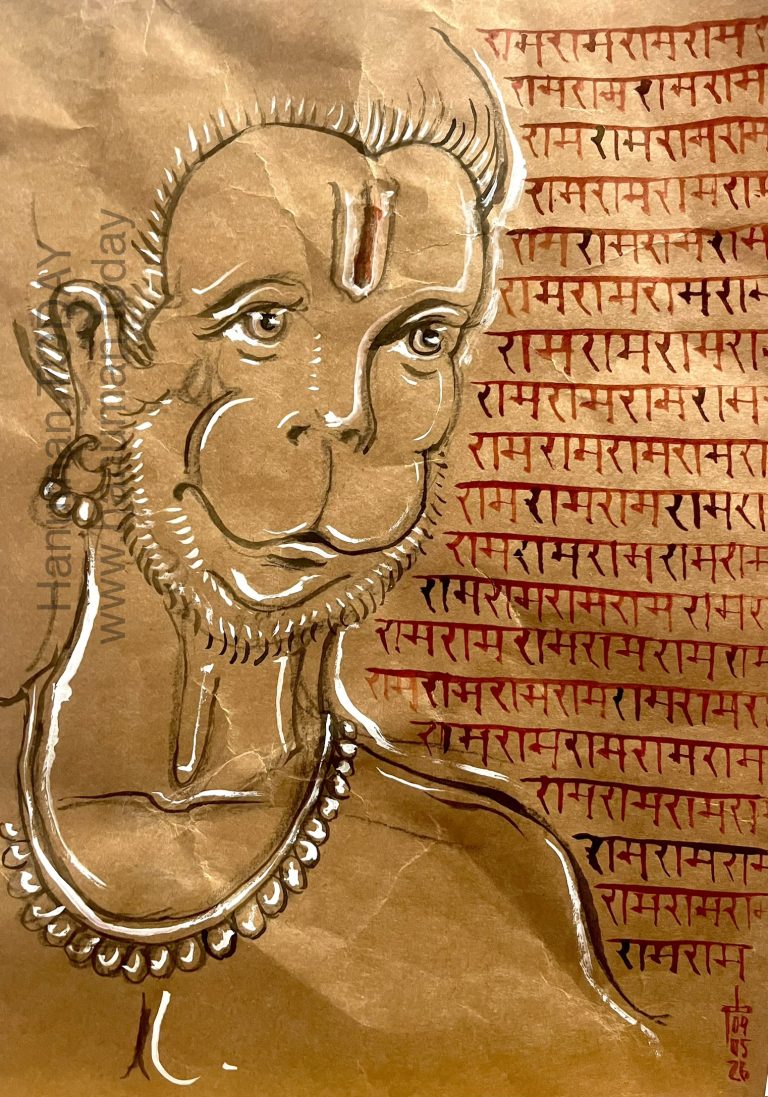 रामरामरामराम
रामरामरामराम
रामरामरामराम
रामरामरामराम
रामरामरामराम
रामरामरामराम
रामरामरामरा
रामरामरामराम
रामरामरामराम
रामरामरामरामरा
रामरामरामरामराम
रामरामरामरामराम
रामरामरामरामरामराम
रामरामरामरामरामरामरा
रामरामरामरामराम
रामरामरामरा
रामरामराम
रामरामराम
रामराम
09
05
26
Hanuman.TODAY
www.hanuman.today